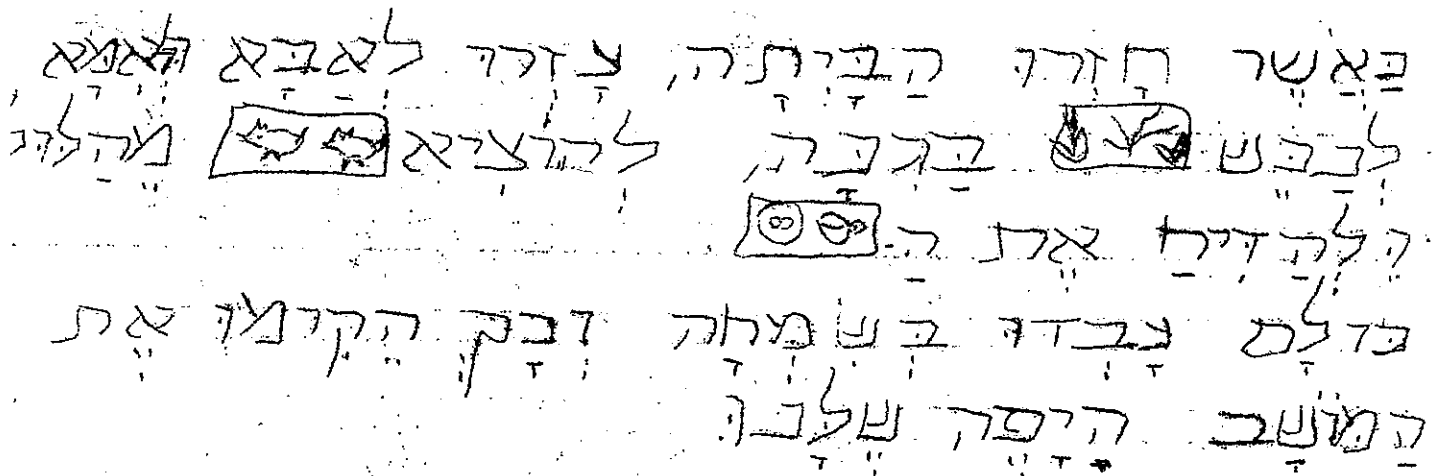 כַּאֲשֶׁר חָזְרוּ הַבַּיְתָה, עָזְרוּ לְאַבָּא וּלְאִמָּא,
לְכַבֵּשׁ בַּגִנָּה, לְהוֹצִיא
וּלְהַדִיחַ אֶת הַ-
כּוּלָם עָבְדוּ בְּשִׂמְחָה וְכָךְ הֵקִימוּ אֶת
הַמּוֹשָׁב הַיָפֶה שֶׁלָנוּ